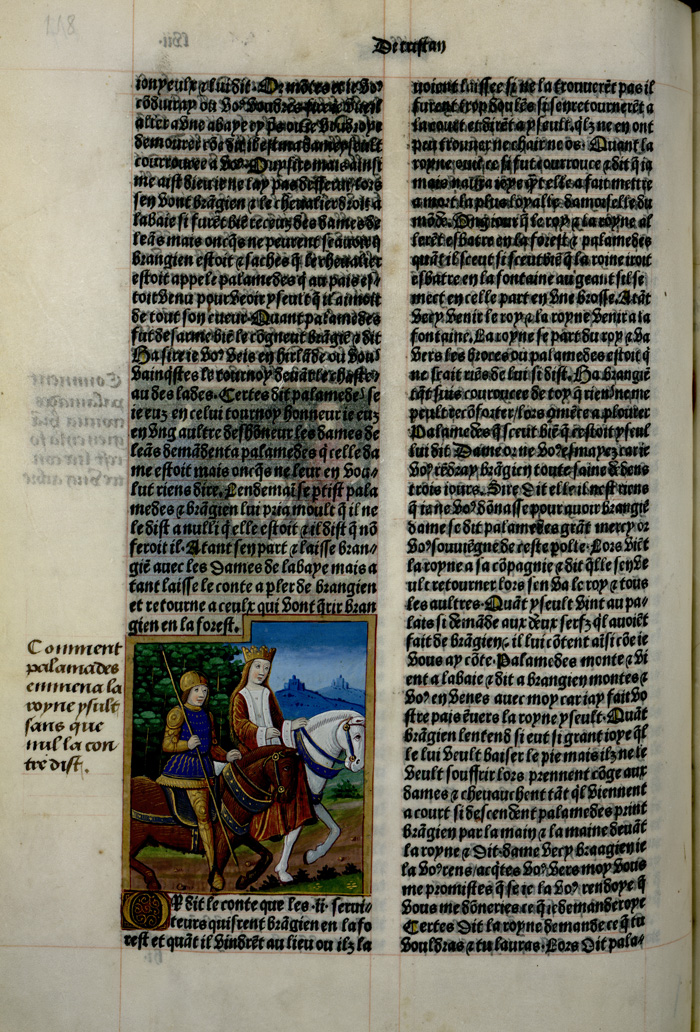 118
De tristan
ion yeulx & lui dit. De motes et ie vo9
cōduiray ou vo9 vouldres
aler a vne abaye cy pres ou ie vouldroye
demourer
courroucee a vo9. Puysire mais ainsi
me aist dieu ie ne lay pas desseruī. lors
sen vont brāgien & le cheualier droit a
labaie si furēt biē receuz des dames de
leās mais oncq̄s ne peurent scauoir q̄
brangien estoit & saches q̄ le cheualier
estoit appele palamedes q̄ au pais es-
toit venu pour veoir yseult q̄ il aimoit
de tout son cueur. Quant palamedes
fut desarme biē le cōgneut brāgiē & dit
Ha sire ie vo9 veis en hirlāde ou vous
vainq̄stes le tournoy deuāt le chaste-
au des lādes. Certes dit palamedes se
ie euz en celui tournoy honneur ie euz
en vng aultre deshōneur les dames de
leās demādent a palamedes q̄ celle da
me estoit mais oncq̄s ne leur en vou-
lut riens dire. Lendemaī se ptist pala
medes & brāgien lui pria moult q̄ il ne
le dist a nulli q̄ elle estoit & il dist q̄ nō
feroit il. Atant sen part & laisse bran-
giē auec les Dames de labaye mais a
tant laisse le conte a pler de brangien
et retourne a ceulx qui vont q̄rir bran
gien en la forest.
Comment
palamades
emmena la
royne ysult
sans que
nul la con
tredist.
Oy dit le conte que les .ii. serui-
teurs quisrent brāgien en la fo
rest et quāt il vindrēt au lieu ou ilz la
uoient laissee si ne la trouuerēt pas il
furent trop doulēs si sen retournerēt a
la court et dirēt a yseult. qlz ne en ont
peu trouuer ne chair ne os. Quant la
royne ouit ce si fut courroucee & dit q̄ ia
mais naura ioye q̄t elle a fait mettre
a mort la plus loyalle damoiselle du
mōde. Ong iour q̄ le roy & la royne al
lerēt esbatre en la forest & palamedes
quāt il sceut si sceut biē q̄ la roine iroit
esbatre en la fontaine au geant si se
meet en celle part en vne brosse. Atāt
vecy venir le roy & la royne venir a la
fontaine. La royne se part du roy & va
vers les broces ou palamedes estoit q̄
ne scait riēs de lui si dist. Ha brangiē
tāt suis courroucee de toy q̄ riens ne me
peult recōforter/lors cōmēce a plourer
Palamedes q̄ sceut biē q̄ cestoit yseul
lui dit Dame or ne vo9 esmayez car ie
vo9 rēdray brāgien toute saine & dens
trois iours. Sire dit elle il nest riens
q̄ ia ne vo9 dōnasse pour auoir brangiē
dame se dit palamedes grāt mercy or
vo9 souuiēgne de ceste polie. Lors viēt
la royne a sa cōpagnie & dit q̄lle sen ve
ult retourner lors sen va le roy & tous
les aultres. Quāt yseult vint au pa-
lais si demāde aux deux serfz q̄l auoiēt
fait de brāgien. il lui cōtent aīsi cōe ie
vous ay cōte. Palamedes monte & vi
ent a labaie & dit a brangien montes &
vo9 en venes auec moy car iay fait vo
stre pais ēuers la royne yseult. Quāt
brāgien lentend si eut si grant ioye q̄l
le lui veult baiser le pie mais ilz ne le
veult souffrir lors prennent cōge aux
dames & cheuauchent tāt q̄l viennent
a court si descendent palamedes print
brāgien par la main & la maine deuāt
la royne & Dit. dame vecy braagien ie
la vo9 rens/acq̄tes vo9 vers moy vous
me promistes q̄ se ie la vo9 rendoye q̄
vous me dōneries ce q̄ ie demanderoye
Certes Dit la royne demande ce q̄ tu
vouldras & tu lauras. Lors Dit pala-